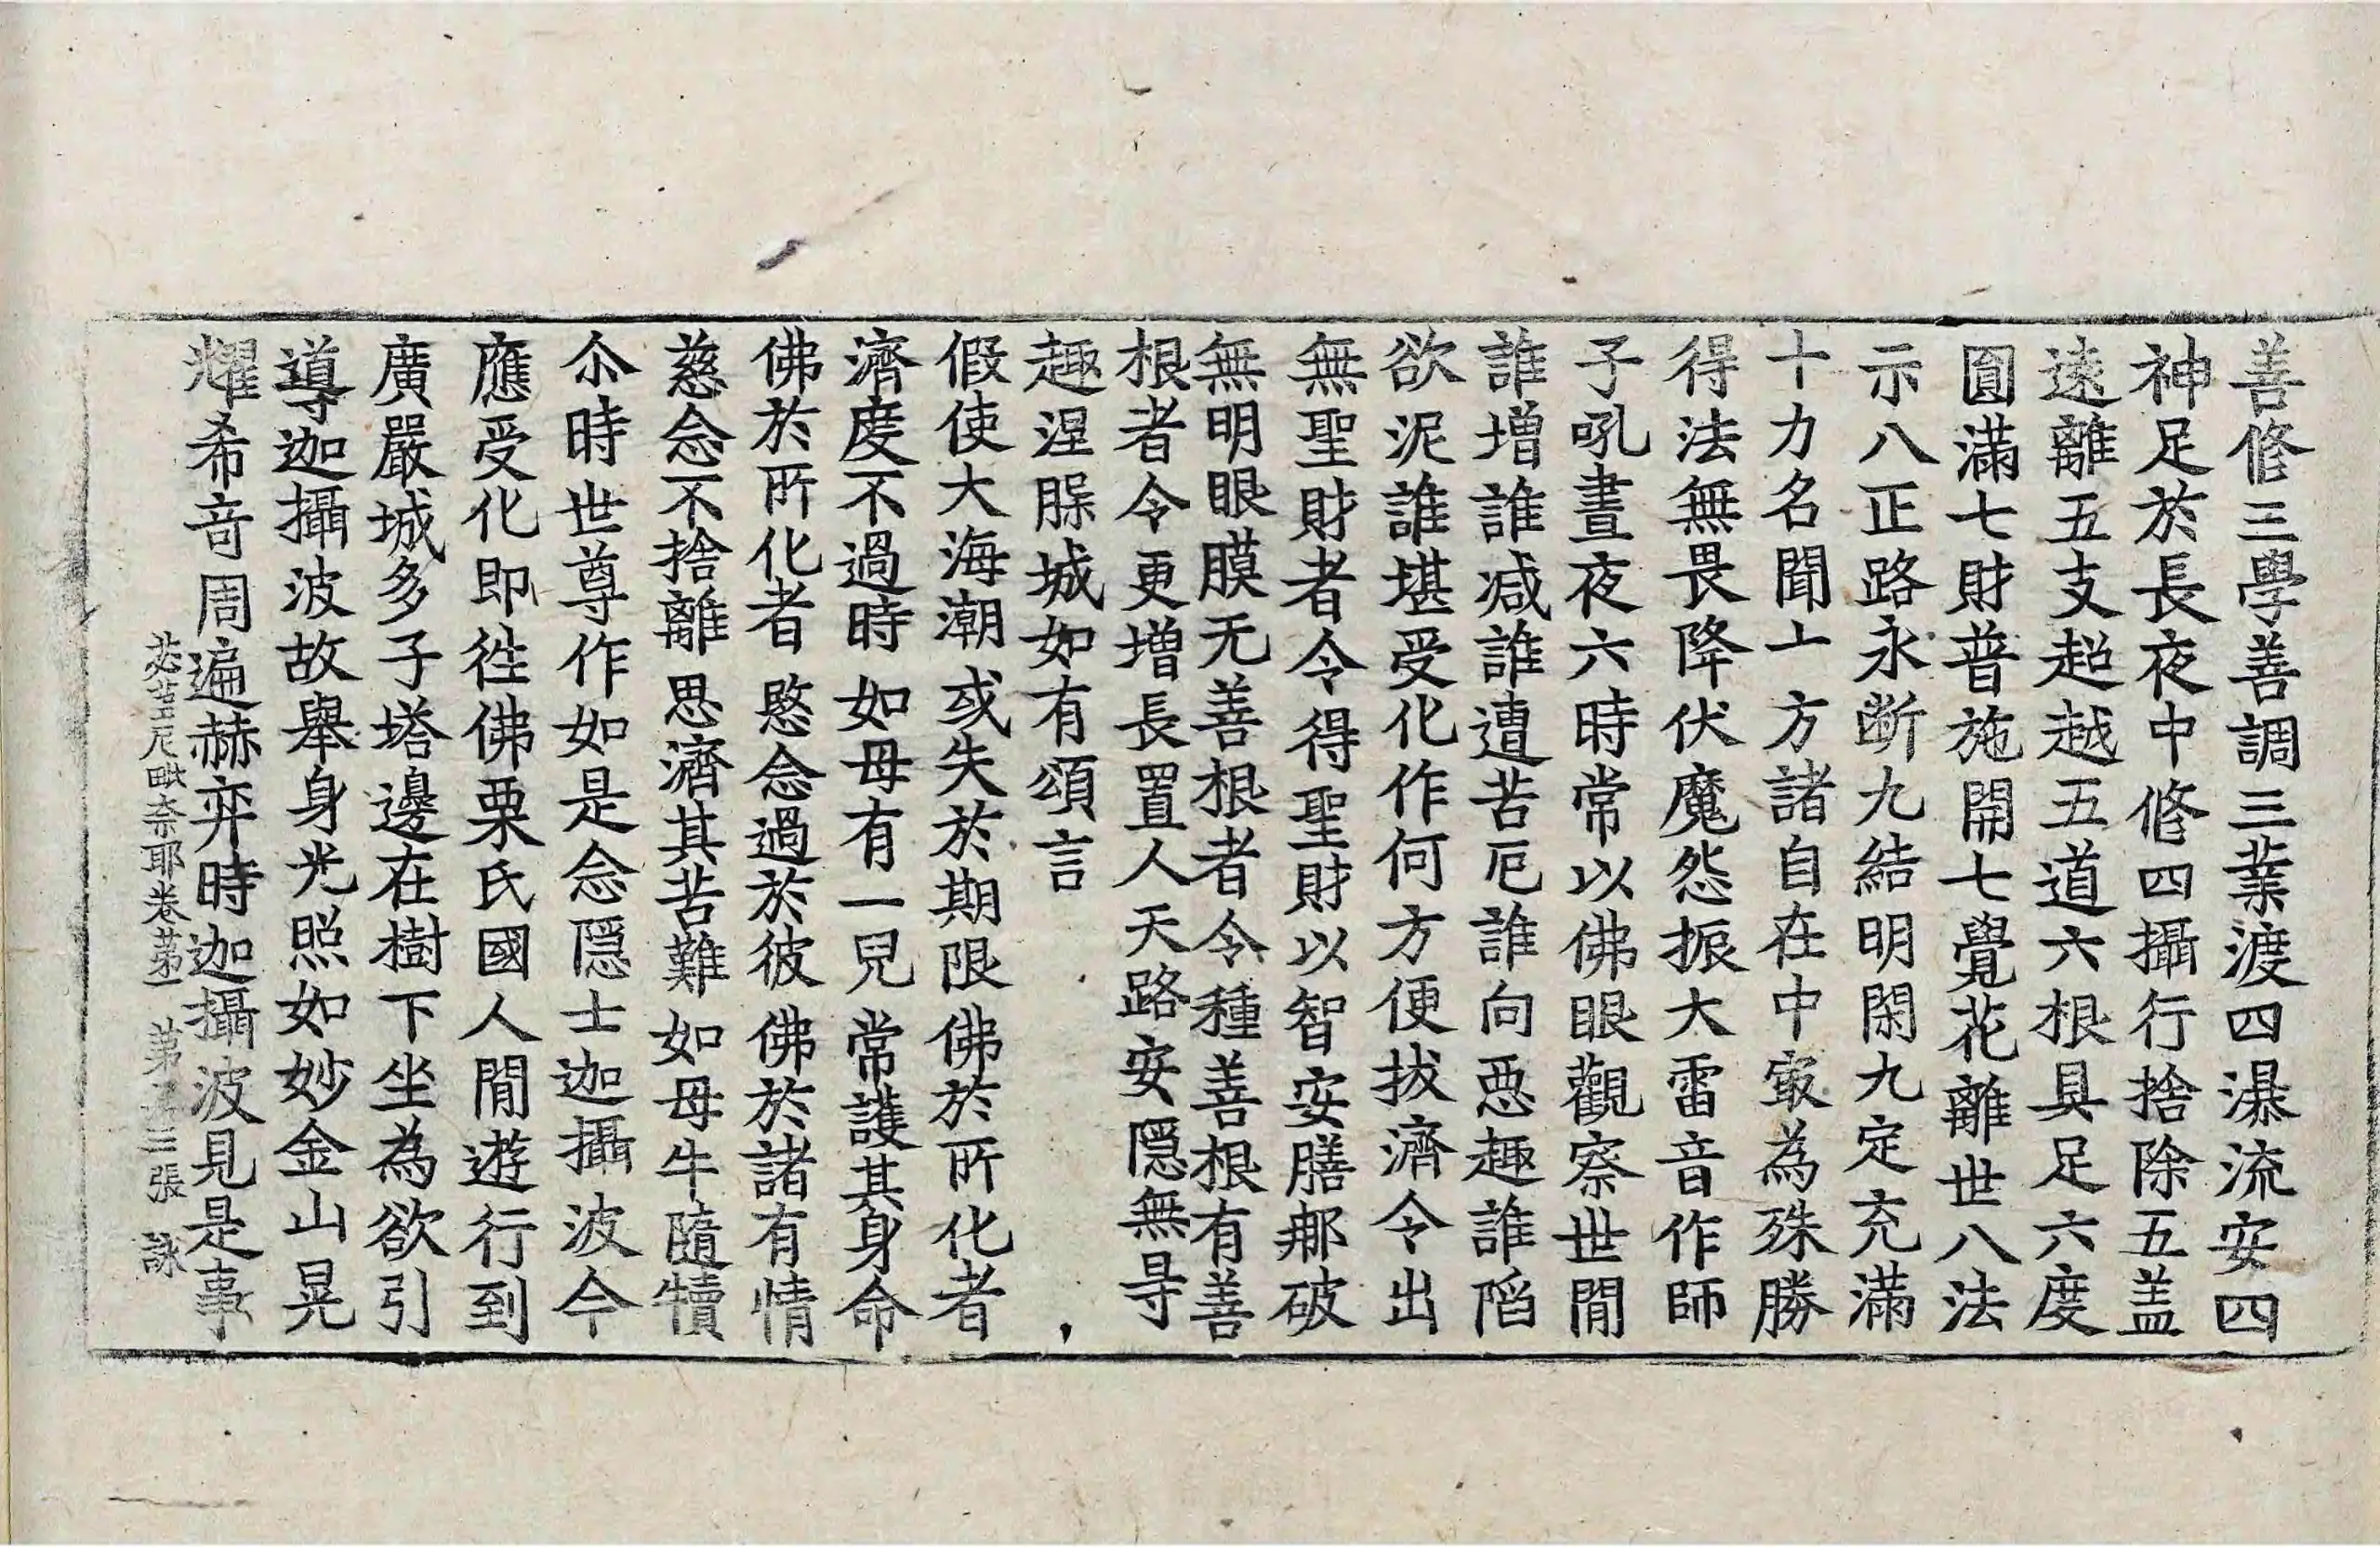 善修三學善調三業渡四瀑流安四
神足於長夜中修四攝行捨除五盖
遠離五支超越五道六根具足六度
圓滿七財普施開七覺花離世八法
示八正路永斷九結明閑九定充滿
十力名聞十方諸自在中㝡為殊勝
得法無畏降伏魔怨振大雷音作師
子吼晝夜六時常以佛眼觀察世間
誰增誰减誰遭苦厄誰向惡趣誰陷
欲泥誰堪受化作何方便拔濟令出
無聖財者令得聖財以智安膳那破
無明眼膜无善根者令種善根有善
根者令更增長置人天路安隱無㝵
趣涅槃城如有頌言
假使大海潮 或失於期限 佛於所化者
濟度不過時 如母有一兒 常護其身命
佛於所化者 愍念過於彼 佛於諸有情
慈念不捨離 思濟其苦難 如母牛隨犢
尒時世尊作如是念隱士迦攝波今
應受化即徃佛栗氏國人間遊行到
廣嚴城多子塔邊在樹下坐為欲引
導迦攝波故舉身光照如妙金山晃
耀希奇周遍赫弈時迦攝波見是事
苾芻尼毗奈耶卷第一 第 三張 詠